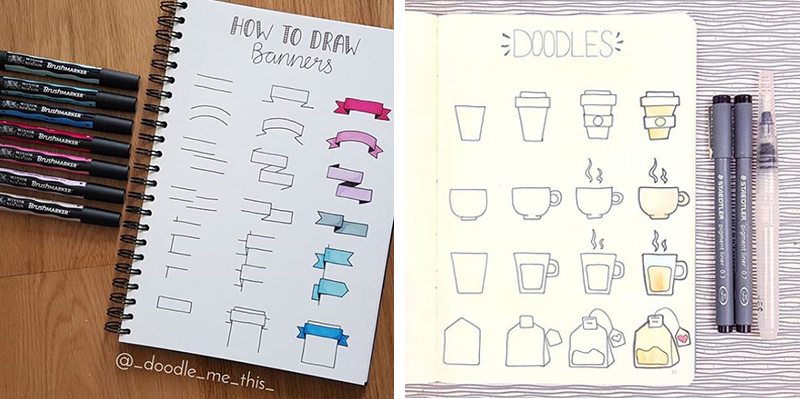 HOW TO DRAW
Banners
BRUSHMARKER
BRUSHMARKER
BRUSHMARKER
BRUSHMARKER
BRUSHMARKER
BRUSHMARKER
BRUSHMARKER
@_doodle_me_this_
DOODLES
STAEDTLER
pigment liner 0.1
STAEDTLER
pigment liner 0.3